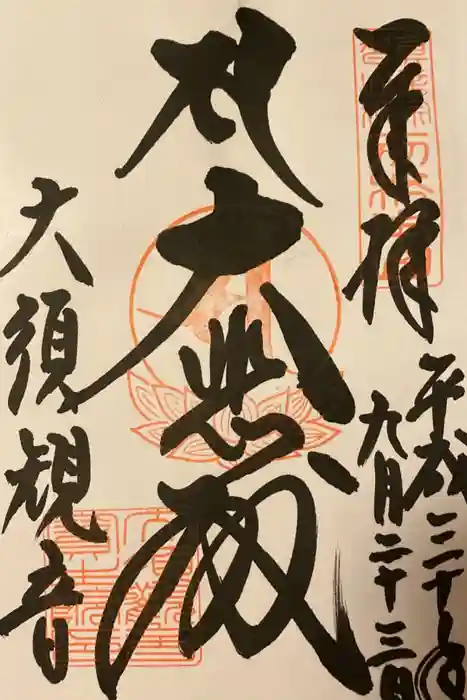 奉拝
平成三十年
九月二十三日
大悲殿
大須観音